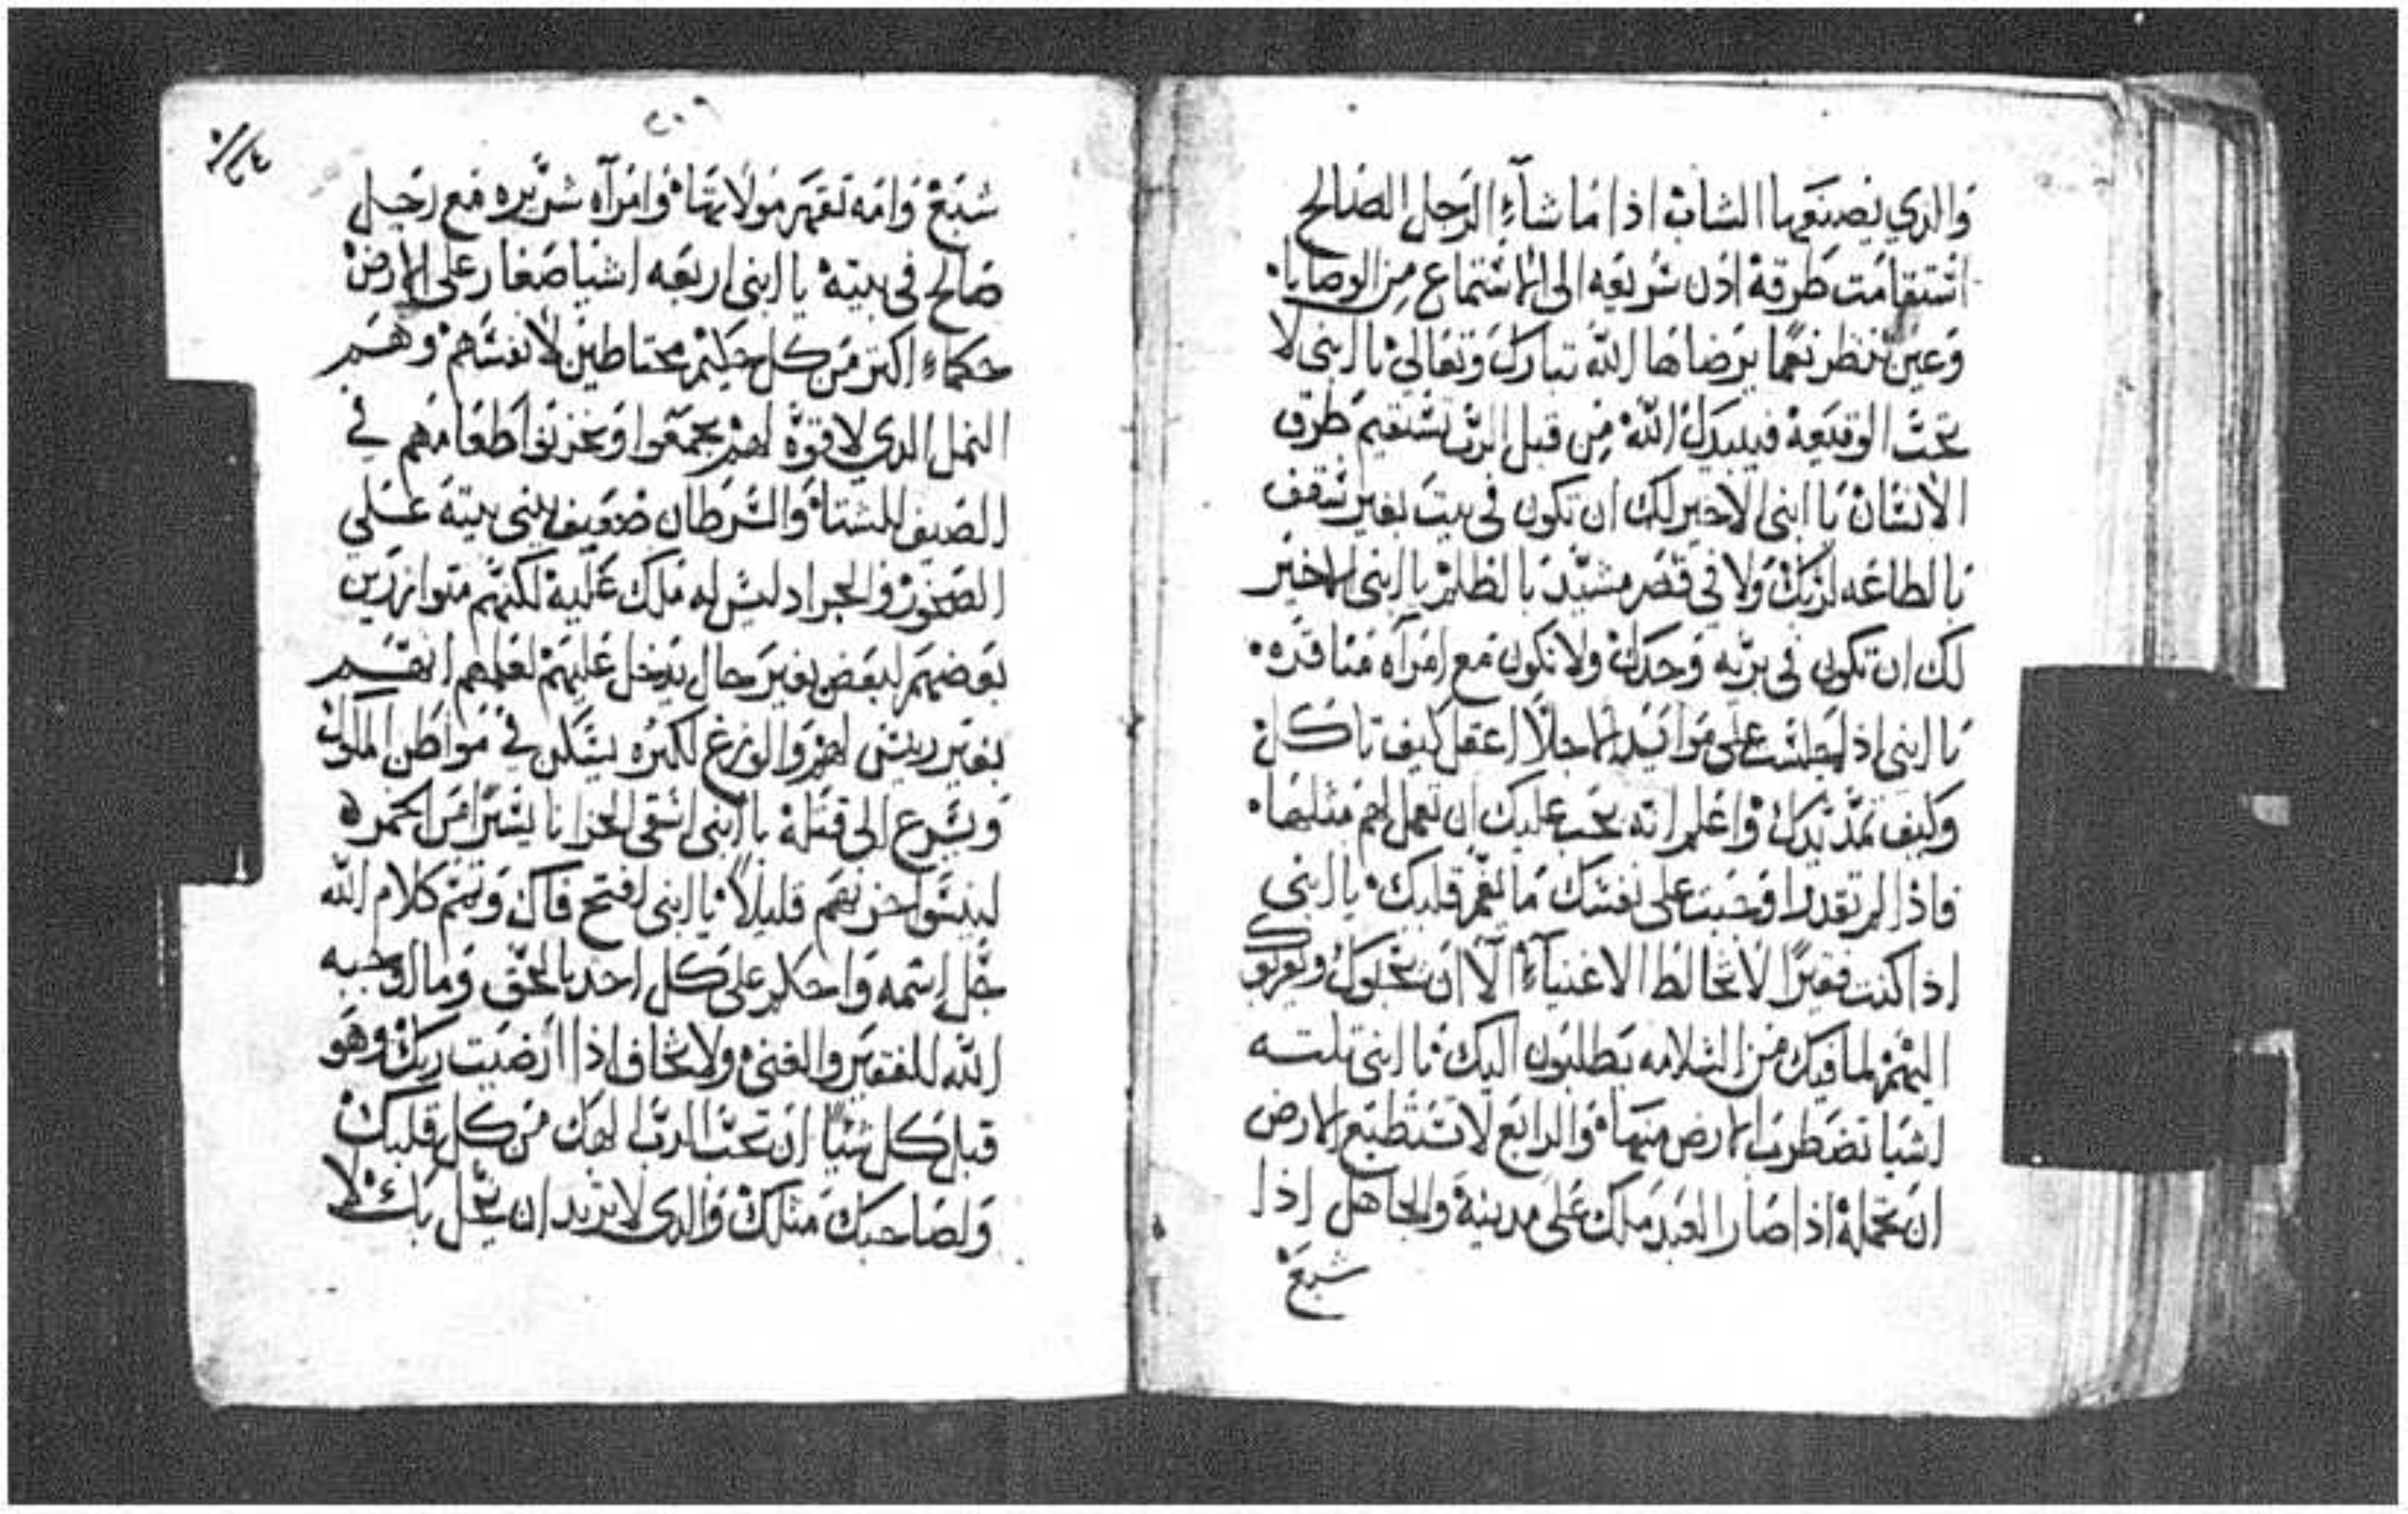 والدي يصنعها الشاب اذا ما شاء الرجل الصالح
استقامت طرقه اذن سريعه الى الاستماع من الوصايا
وعين تنظر نعما يرضاها الله تبارك وتعالي يا ابني لا
تحب الوقيعه فيبيدك الله من قبل الرب تستقيم طرق
الانسان يا ابني لاخير لك ان تكون في بيت بغير سقف
بالطاعه لربك ولا في قصر مشيد بالظلم يا ابني لاخير
لك ان تكون في بريه وحدك ولا تكون مع امرآه منافره
يا ابني اذا جلست على موايد الاجلا اعقل كيف تاكل
وكيف تمد يدك واعلم انه يجب عليك ان تعمل لهم مثلها
فاذا لم تقدر اوجبت على نفسك ما يغم قلبك يا ابني
اذا كنت فقيرا لا تخالط الاغنياء الا ان يجلوك ويقربوك
اليهم لما فيك من السلامه يطلبون اليك يا ابني تلته
اشيا تضطرب الارض منها والرابع لا تستطيع الارض
ان تحمله اذا صار العبد ملك على مدينة والجاهل اذا
شبع
٢٠٦
شبع وامه تقهر مولاتها وامرآه شريره مع رجل
صالح في بيته يا ابني اربعه اشيا صغار على الارض
حكماء اكتر من كل حكيم محتاطين لانفسهم وهم
النمل الدي لا قوة لهم يجمعوا ويخزنوا طعامهم في
الصيف للشتا والسرطان ضعيف يبني بيته علي
الصخور والجراد ليس له ملك عليه لكنهم متوازرين
بعوضهم لبعض بغير محال يدخل عليهم لعلمهم انهم
بغير رييس لهم والوزغ لكبره يسكن في مواطن الملوك
ويسرع الى قتله يا ابني اسقي الحزانا يسيرا من الخمره
لينسوا حزنهم قليلا يا ابني افتح فاك وتمم كلام الله
جل اسمه واحكم على كل احد بالحق وما اوجبه
الله للفقير والغني ولا تخاف اذا ارضيت ربك وهو
قبل كل شيا ان تحب الرب الهك من كل قلبك
ولصاحبك متلك والدى لا تريد ان يحل بك لا